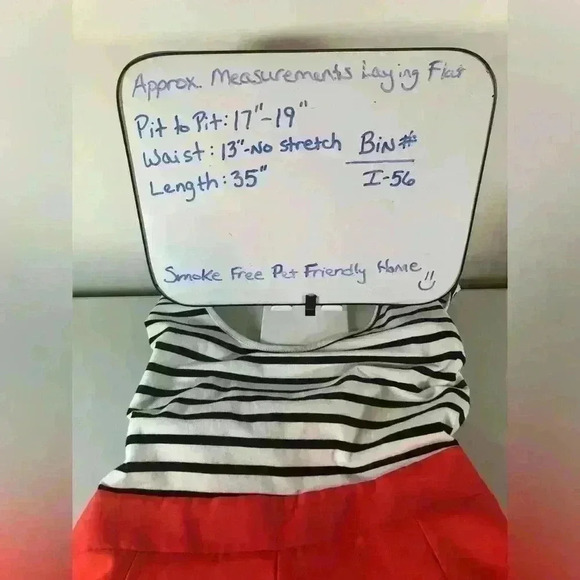 Approx. Measurements Laying Flat
Pit to Pit: 17"-19"
Waist: 13"-No stretch
Length: 35"
Bin#
I-56
Smoke Free Pet Friendly Home